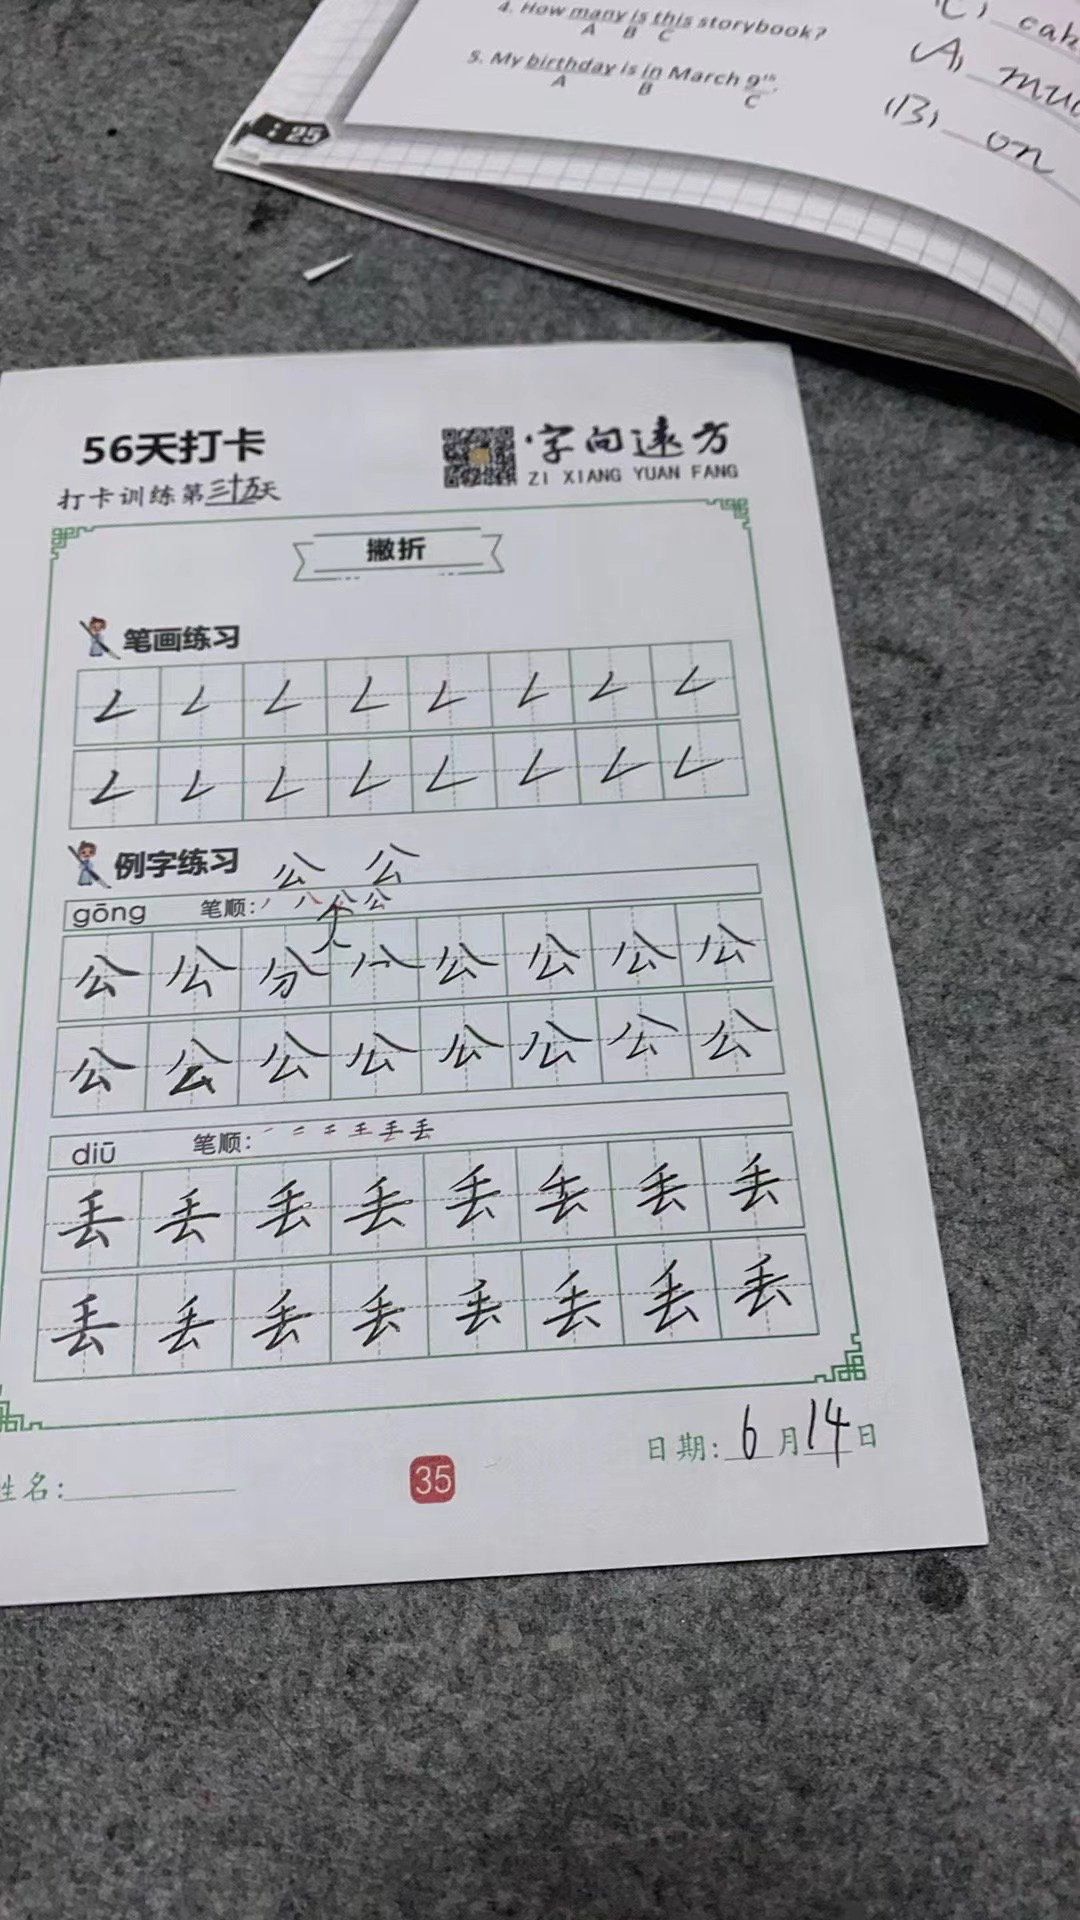 4. How many is this storybook?
A B C
5. My birthday is in March 9th.
A B C
(C)
A)
(B) on
: 25
56天打卡
打卡训练第三十五天
字向远方
ZI XIANG YUAN FANG
撇折
笔画练习
例字练习
公 公
gōng 笔顺: 丿 八 公 公
公 公 分 八 公 公 公 公
公 公 公 公 公 公 公 公
diū 笔顺: 一 二 王 丢 丢
丢 丢 丢 丢 丢 丢 丢 丢
丢 丢 丢 丢 丢 丢 丢 丢
日期: 6 月 14 日
姓名:
35